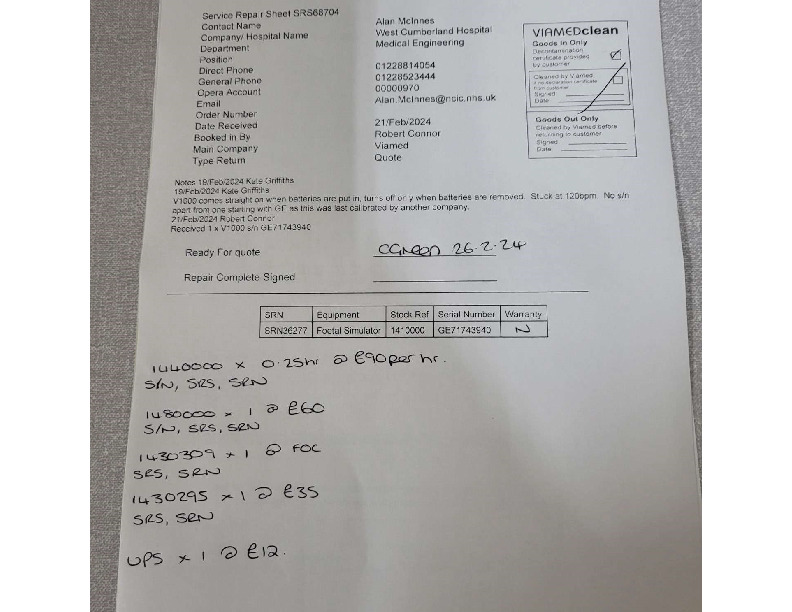 Service Repair Sheet SRS68704
Contact Name Alan McInnes
Company/Hospital Name West Cumberland Hospital
Department Medical Engineering
Position
Direct Phone 01228814054
General Phone 01228523444
Opera Account 00000970
Email Alan.McInnes@ncic.nhs.uk
Order Number
Date Received 21/Feb/2024
Booked in By Robert Connor
Main Company Viamed
Type Return Quote
VIAMEDclean
Goods in Only
Decontamination
certificate provided
by customer
Cleaned by Viamed
if no decontamination certificate
from customer
Signed
Date
Goods Out Only
Cleaned by Viamed before
returning to customer
Signed
Date
Notes 19/Feb/2024 Kate Griffiths
19/Feb/2024 Kate Griffiths
V1000 comes straight on when batteries are put in, turns off only when batteries are removed. Stuck at 120bpm. No s/n
apart from one starting with GE as this was last calibrated by another company.
21/Feb/2024 Robert Connor
Received 1 x V1000 s/n GE71743940
Ready For quote CGreen 26.2.24
Repair Complete-Signed
SRN Equipment Stock Ref Serial Number Warranty
SRN36277 Foetal Simulator 1410000 GE71743940 N
1440000 x 0.25hr @ £90 per hr.
S/N, SRS, SRN
1480000 x 1 @ £60
S/N, SRS, SRN
1430309 x 1 @ FOC
SRS, SRN
1430295 x 1 @ £35
SRS, SRN
UPS x 1 @ £12.